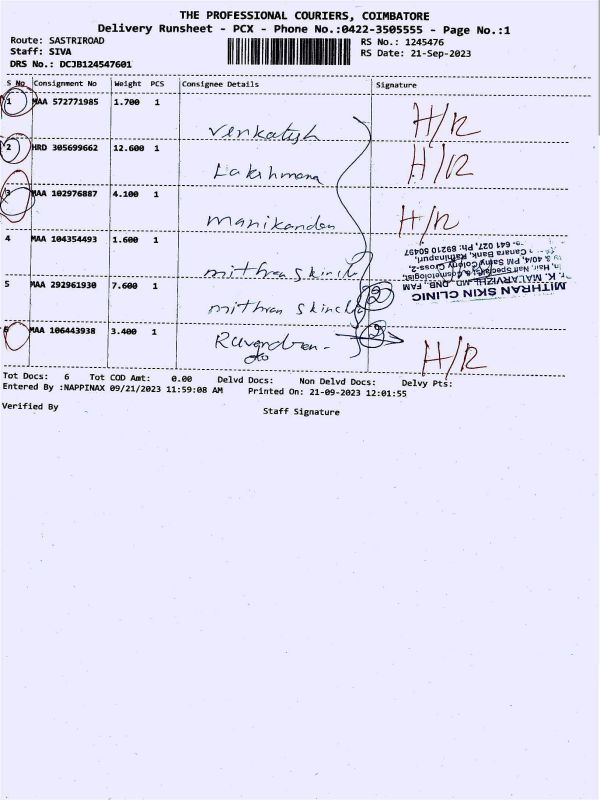 THE PROFESSIONAL COURIERS, COIMBATORE
Delivery Runsheet - PCX - Phone No.:0422-3505555 - Page No.:1
Route: SASTRIROAD
RS No.: 1245476
Staff: SIVA
RS Date: 21-Sep-2023
DRS No.: DCJB124547601
S No Consignment No Weight PCS Consignee Details Signature
1 MAA 572771985 1.700 1
Venkatesh H/R
2 HRD 305699662 12.600 1
Lakshmana H/R
3 MAA 102976887 4.100 1
Manikandan H/R
4 MAA 104354493 1.600 1
mithran skin
5 MAA 292961930 7.600 1
mithran skin
MITHRAN SKIN CLINIC
K. MALARVIZHI, MD., DNB., FAM
in, Hair, Nail Specialist & Cosmetologist,
40/4, PM Samy Colony Cross-2,
Canara Bank, Rathinapuri,
641 027, Ph: 89210 50497
2
6 MAA 106443938 3.400 1
2
H/R
Tot Docs: 6 Tot COD Amt: 0.00 Delvd Docs: Non Delvd Docs: Delvy Pts:
Entered By :NAPPINAX 09/21/2023 11:59:08 AM Printed On: 21-09-2023 12:01:55
Verified By
Staff Signature